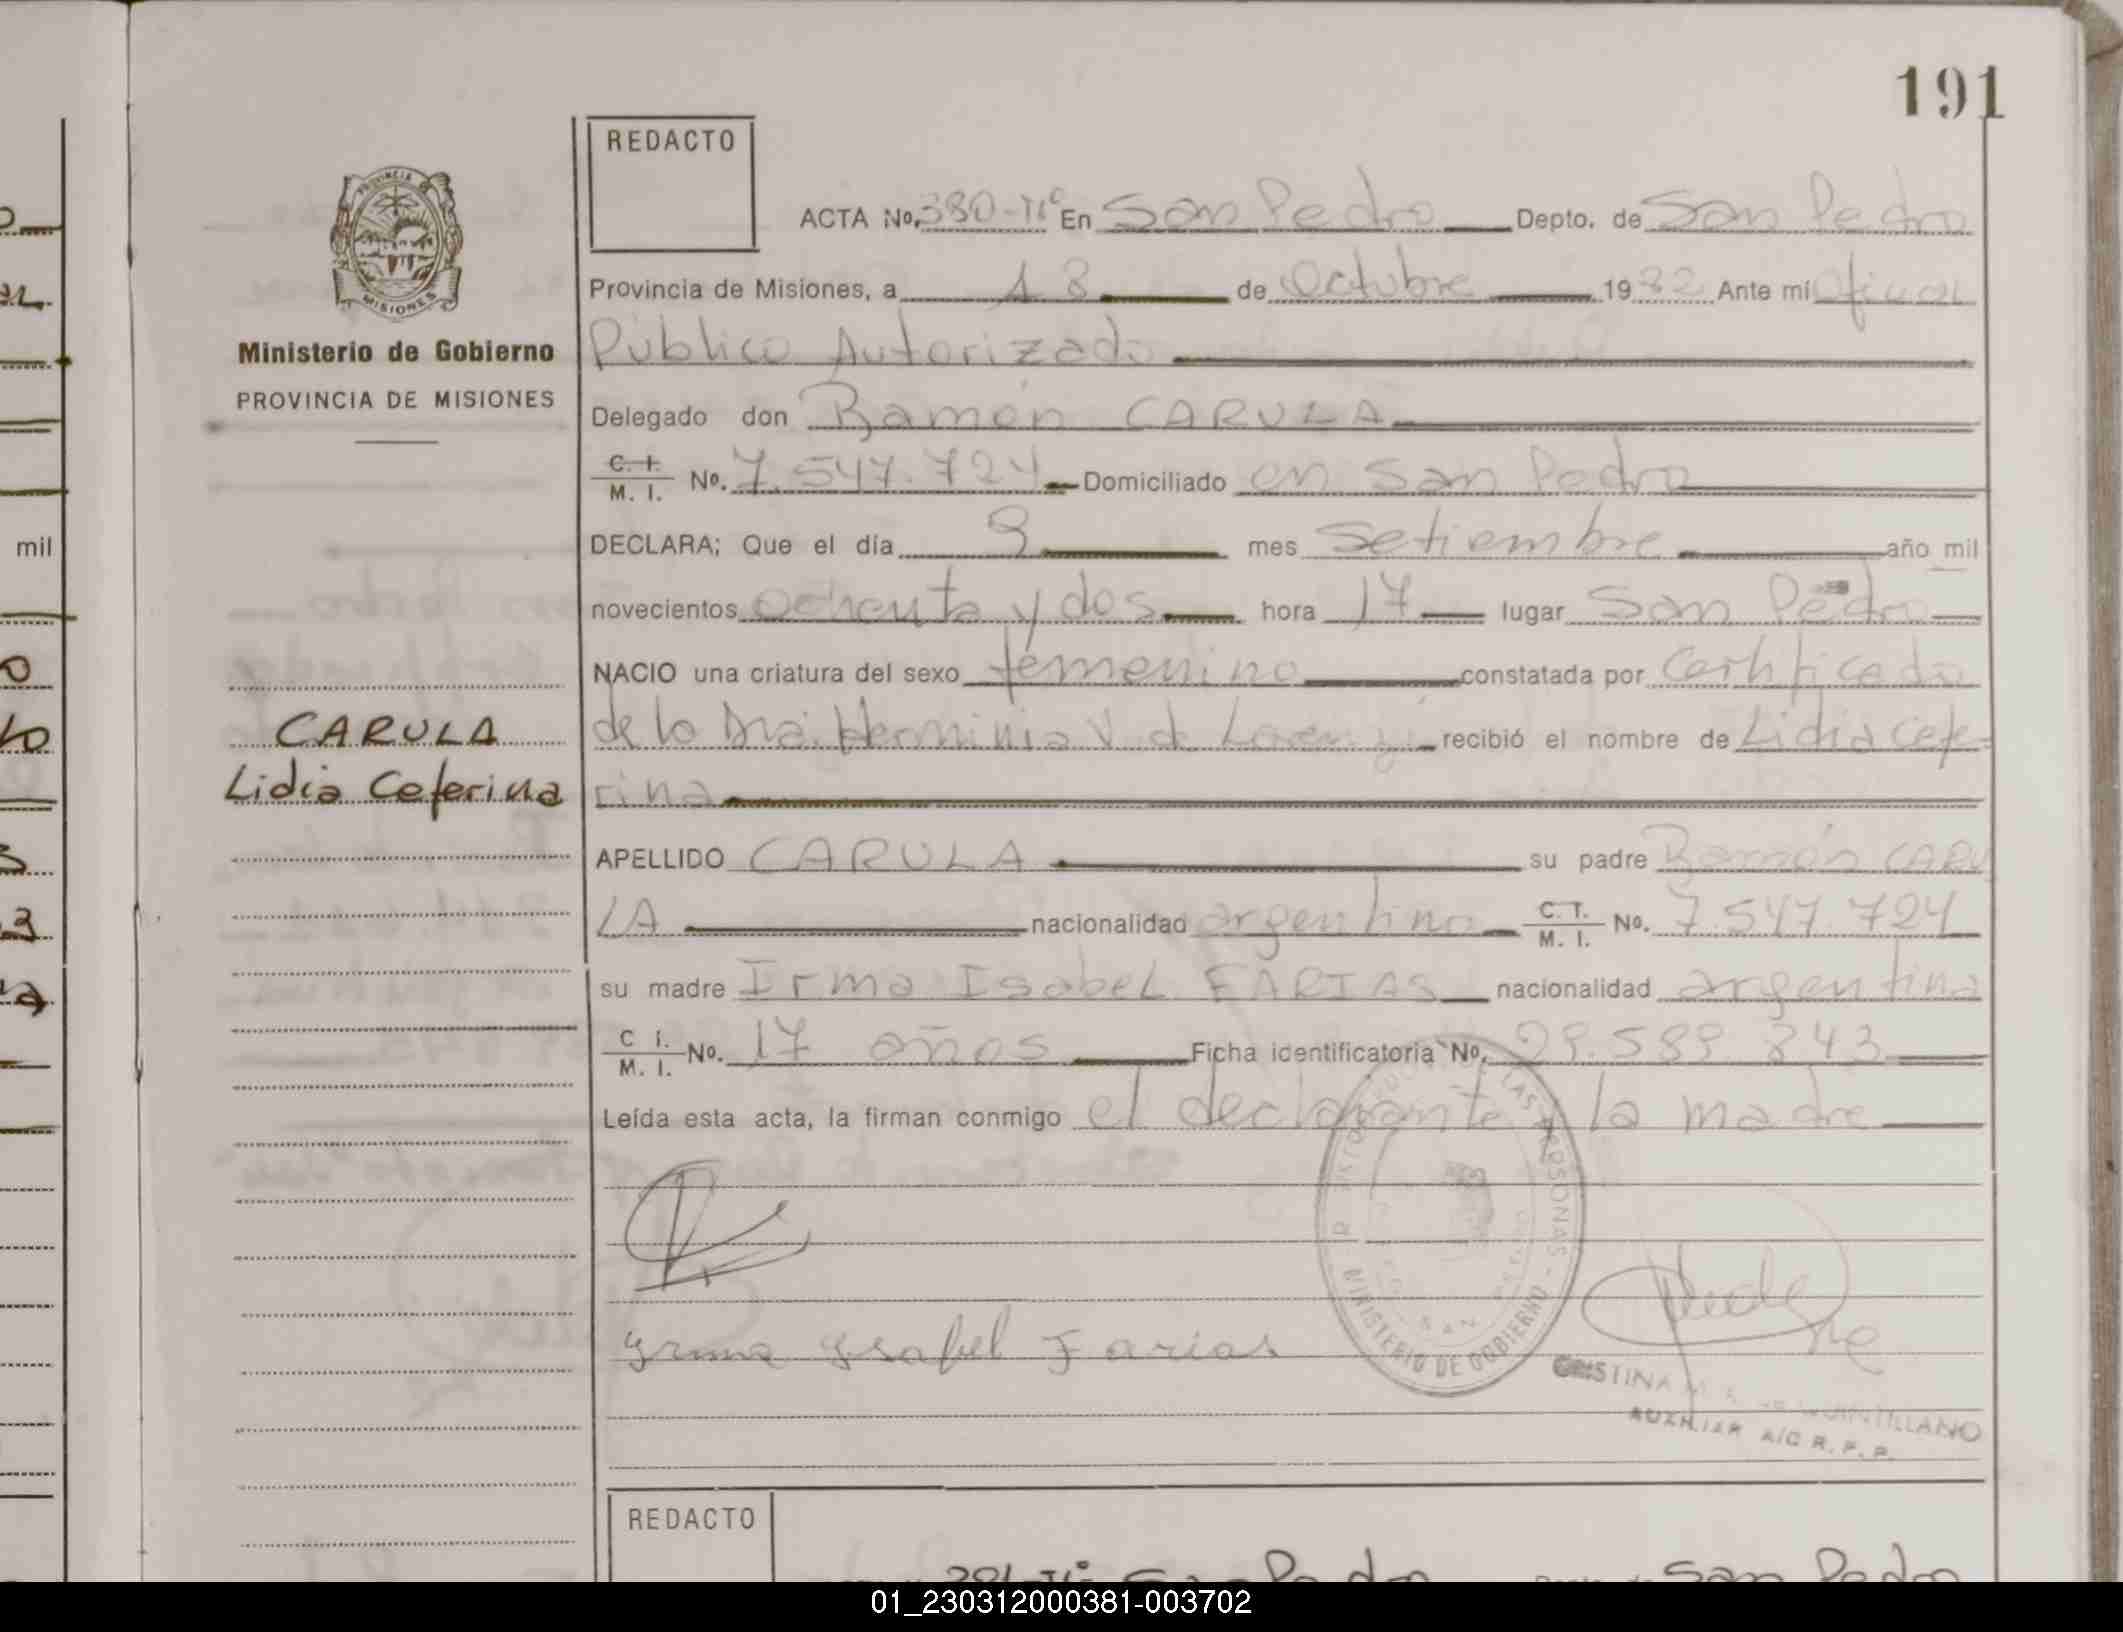 191
REDACTO
ACTA No. 380-Tº En San Pedro Depto. de San Pedro
Provincia de Misiones, a 18 de Octubre 1982 Ante mi Oficial
Público Autorizado
Delegado don Ramón CARULA
C. I. M. I. No. 7.547.724 Domiciliado en San Pedro
DECLARA; Que el día 9 mes Setiembre año mil
novecientos ochenta y dos hora 17 lugar San Pedro
NACIO una criatura del sexo femenino constatada por Certificado
de la Dra. Herminia V. de Lorenzi recibió el nombre de Lidia Cefe-
rina
APELLIDO CARULA su padre Ramón CARU
LA nacionalidad argentino C. I. M. I. No. 7.547.724
su madre Irma Isabel FARIAS nacionalidad argentina
C I. M. I. No. 17 años Ficha identificatoria No. 29.589.843
Leída esta acta, la firman conmigo el declarante y la madre
PROVINCIA DE
MISIONES
Ministerio de Gobierno
PROVINCIA DE MISIONES
CARULA
Lidia Ceferina
mil
Yrma Ysabel Farias
LAS PERSONAS - MINISTERIO DE GOBIERNO
CRISTINA M. QUINTILLANO
AUXILIAR A/C R.P.P.
REDACTO
381-Tº San Pedro San Pedro
01_230312000381-003702